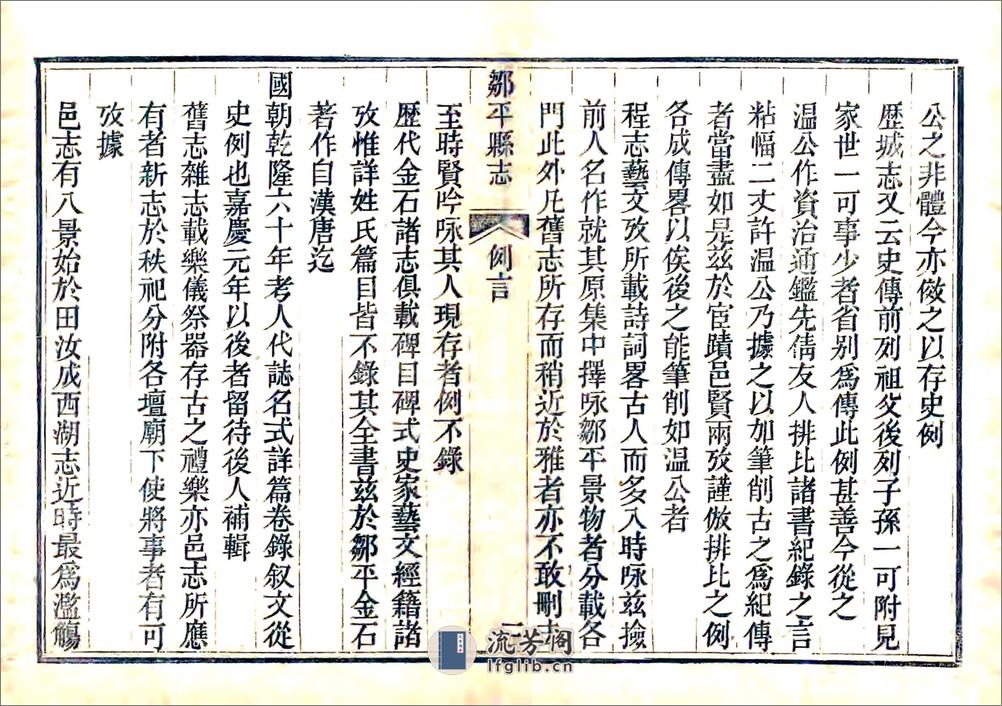 公之非體今亦倣之以存史例
歷城志又云史傳前列祖父後列子孫一可附見
家世一可事少者省別爲傳此例甚善今從之
溫公作資治通鑑先倩友人排比諸書紀錄之言
粘幅二丈許溫公乃據之以加筆削古之爲紀傳
者當盡如是兹於宦蹟邑賢兩攷謹倣排比之例
各成傳畧以俟後之能筆削如溫公者
程志藝文攷所載詩詞畧古人而多入時咏兹撿
前人名作就其原集中擇咏鄒平景物者分載各
門此外凡舊志所存而稍近於雅者亦不敢刪去
鄒平縣志 例言 二
至時賢吟咏其人現存者例不錄
歷代金石諸志俱載碑目碑式史家藝文經籍諸
攷惟詳姓氏篇目皆不錄其全書兹於鄒平金石
著作自漢唐迄
國朝乾隆六十年考人代誌名式詳篇卷錄叙文從
史例也嘉慶元年以後者留待後人補輯
舊志雜志載樂儀祭器存古之禮樂亦邑志所應
有者新志於秩祀分附各壇廟下使將事者有可
攷據
邑志有八景始於田汝成西湖志近時最爲濫觴
流芳阁
lfglib.cn